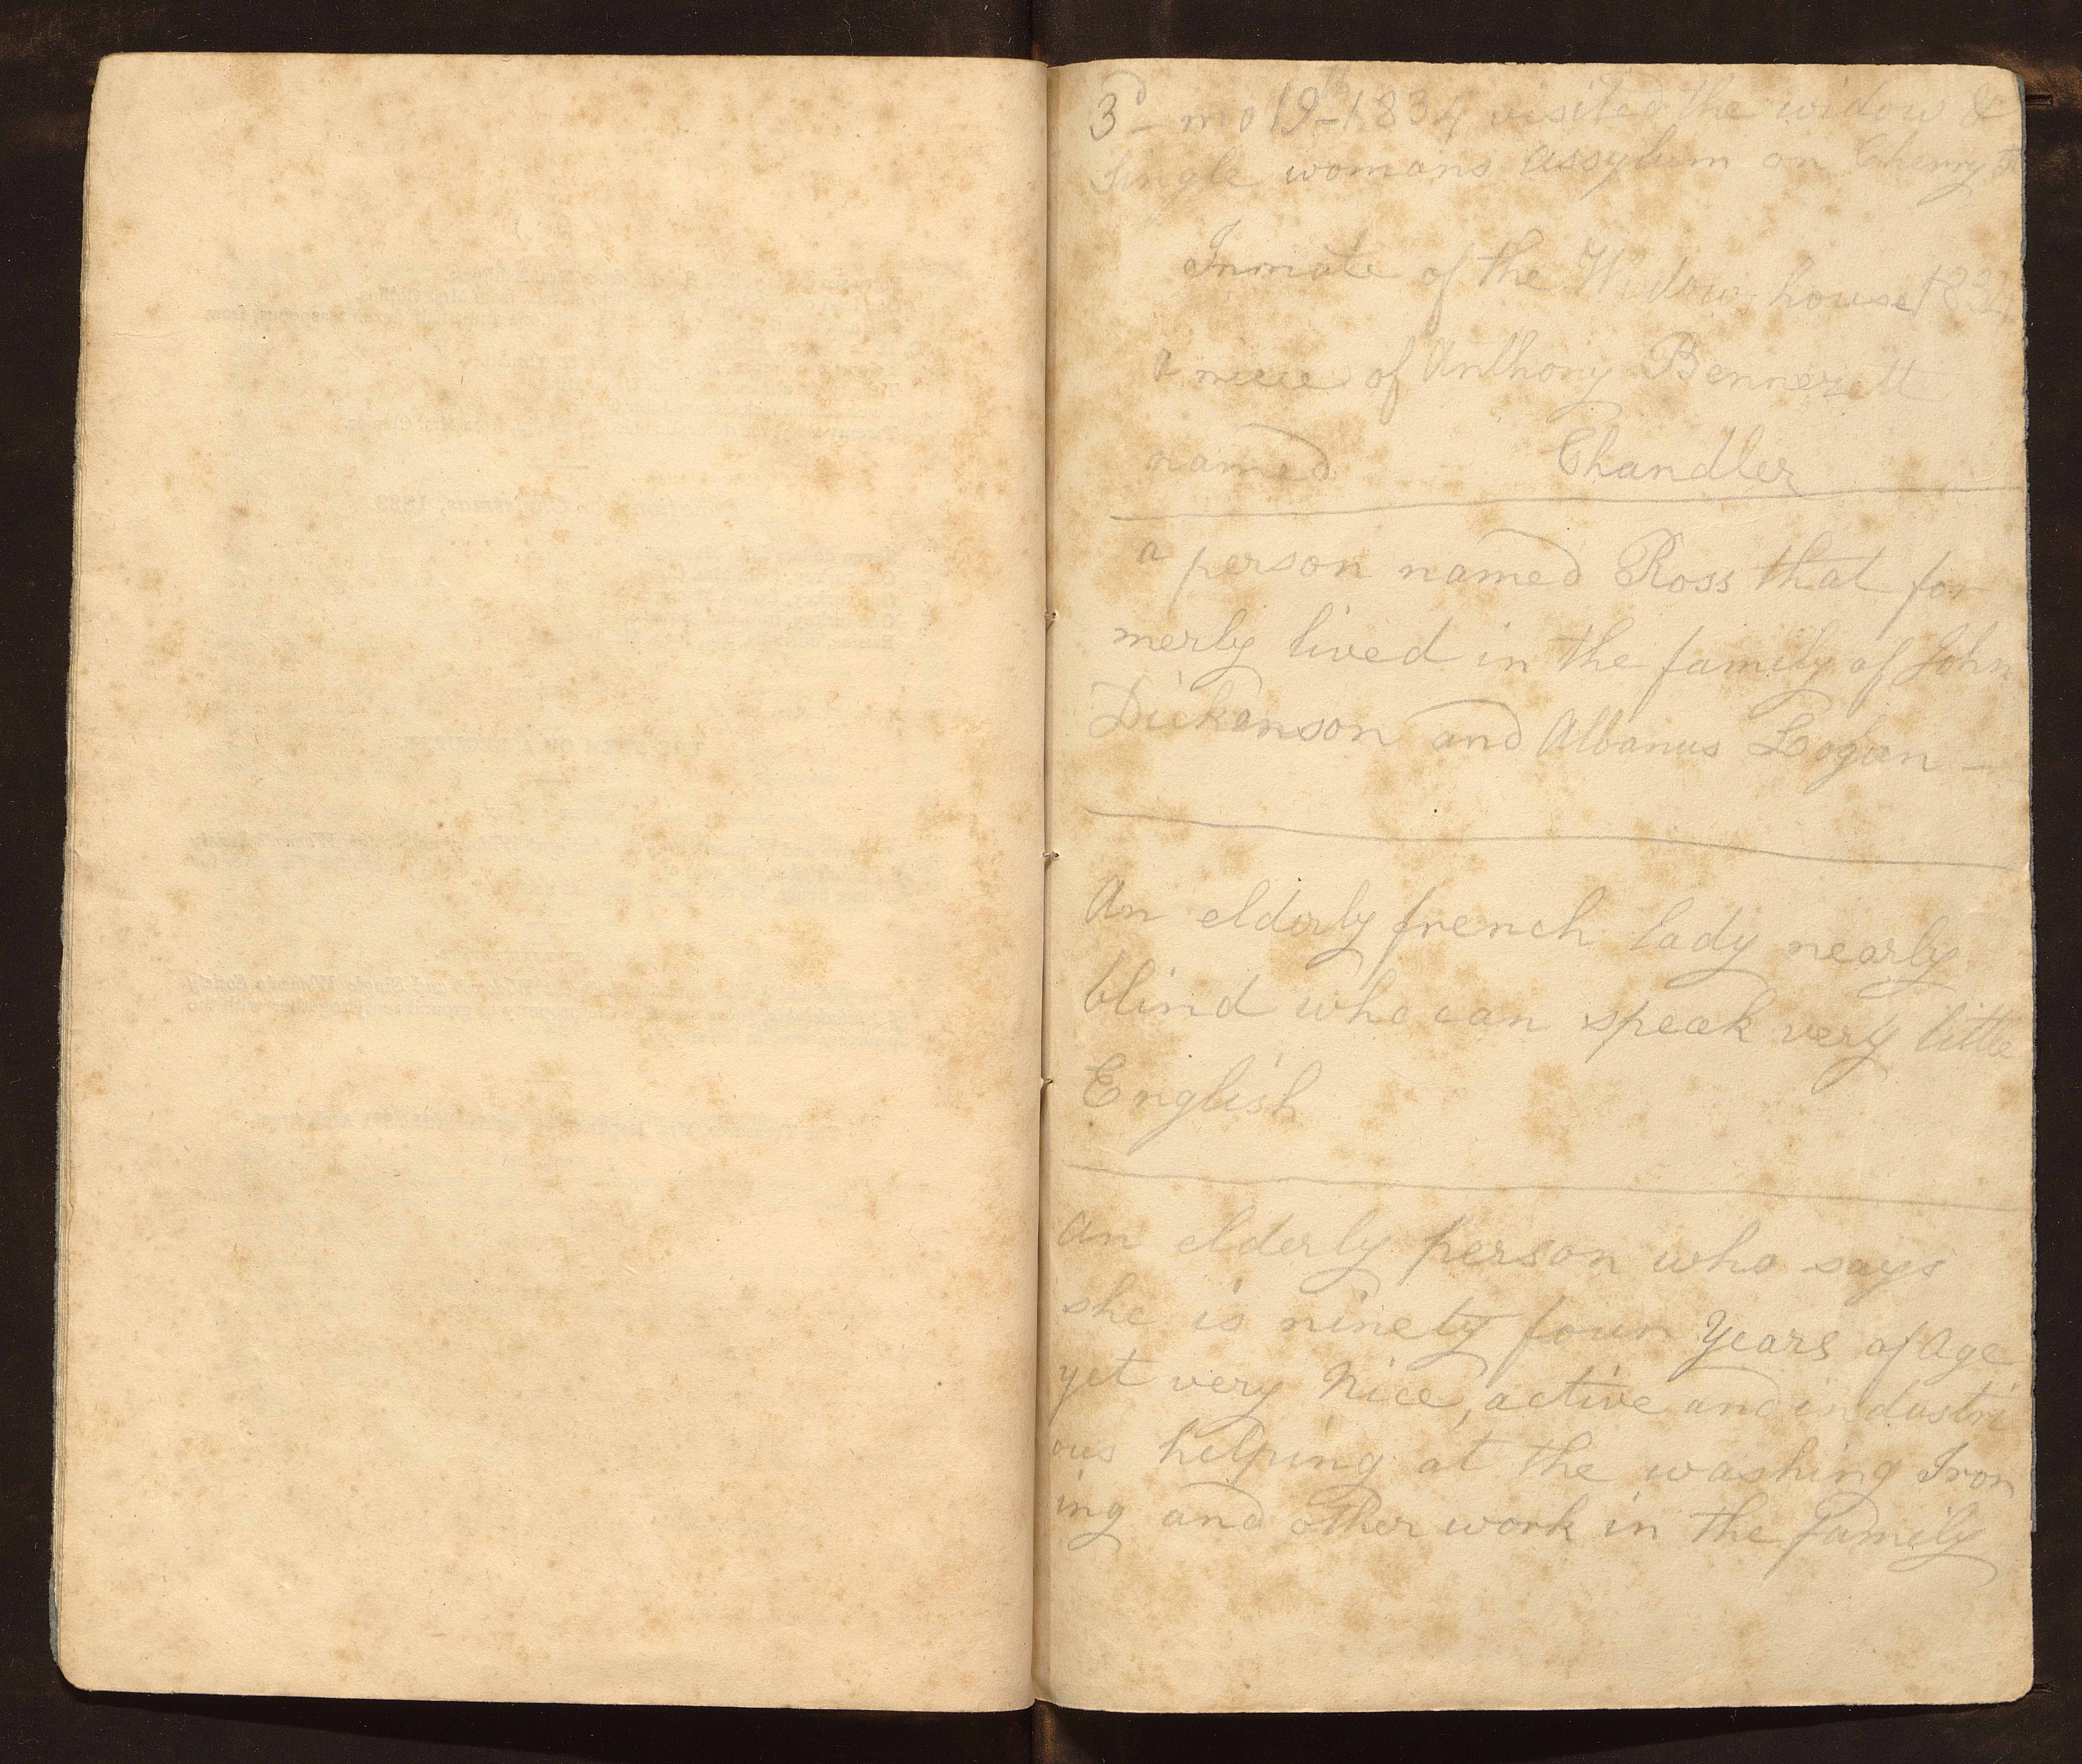 3d mo 19th 1834 visited the widow &
Single womans Assylum on Cherry St
Inmate of the Widows house 1834
a niece of Anthony Bennezett
named Chandler
a person named Ross that for
merly lived in the family of John
Dickenson and Albanus Logan -
An elderly french lady nearly
blind who can speak very little
English
an elderly person who says
she is ninety four Years of Age
yet very Nice, active and industri
ous helping at the washing Iron
ing and other work in the family